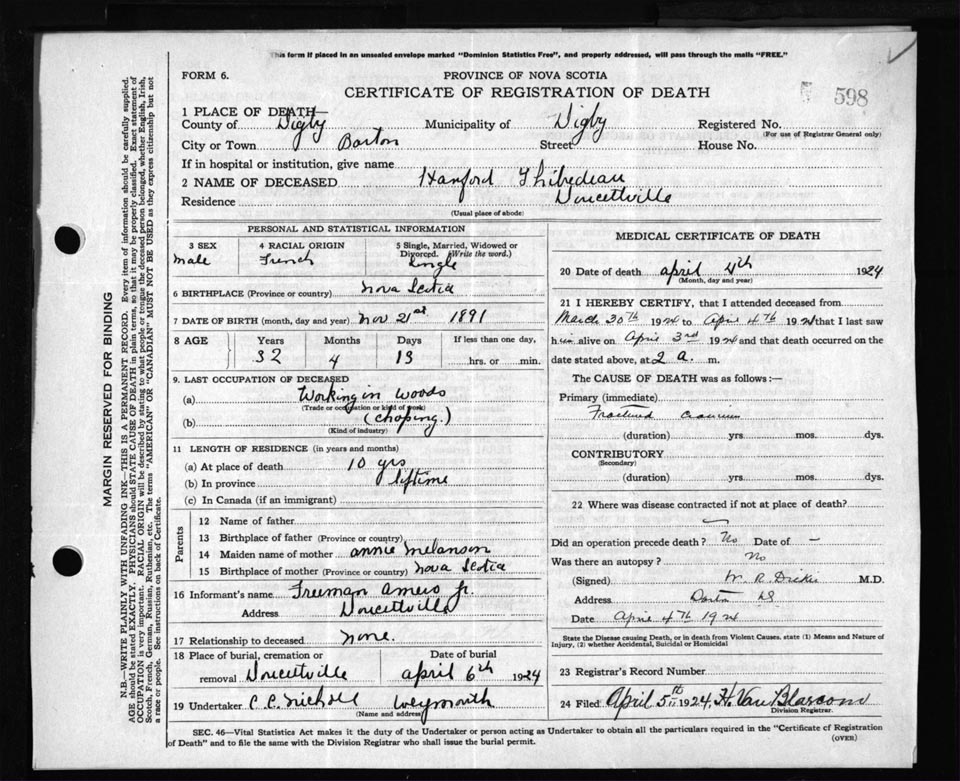 This form if placed in an unsealed envelope marked "Dominion Statistics Free", and properly addressed, will pass through the mails "FREE."
FORM 6.
PROVINCE OF NOVA SCOTIA
CERTIFICATE OF REGISTRATION OF DEATH
598
1 PLACE OF DEATH—
County of Digby Municipality of Digby Registered No.
(For use of Registrar General only)
City or Town Barton Street House No.
If in hospital or institution, give name
2 NAME OF DECEASED Hanford Thibedeau
Residence Doucettville
(Usual place of abode)
PERSONAL AND STATISTICAL INFORMATION
3 SEX 4 RACIAL ORIGIN 5 Single, Married, Widowed or Divorced. (Write the word.)
Male French Single
6 BIRTHPLACE (Province or country) Nova Scotia
7 DATE OF BIRTH (month, day and year) Nov 21st 1891
8 AGE Years Months Days If less than one day,
32 4 13 hrs. or min.
9. LAST OCCUPATION OF DECEASED
(a) Working in Woods
(Trade or occupation or kind of work)
(b) (Choping.)
(Kind of industry)
11 LENGTH OF RESIDENCE (in years and months)
(a) At place of death 10 yrs
(b) In province liftime
(c) In Canada (if an immigrant)
Parents
12 Name of father
13 Birthplace of father (Province or country)
14 Maiden name of mother Annie Melanson
15 Birthplace of mother (Province or country) Nova Scotia
16 Informant's name Freeman Amero Jr.
Address Doucettville
17 Relationship to deceased None.
18 Place of burial, cremation or removal Doucettville Date of burial April 6th 1924
19 Undertaker C. C. Nicholl Weymouth
(Name and address)
MEDICAL CERTIFICATE OF DEATH
20 Date of death April 4th 1924
(Month, day and year)
21 I HEREBY CERTIFY, that I attended deceased from
March 30th 1924 to April 4th 1924 that I last saw
him alive on April 3rd 1924 and that death occurred on the
date stated above, at 2 a. m.
The CAUSE OF DEATH was as follows:—
Primary (immediate)
Fractured Cranium
(duration) yrs. mos. dys.
CONTRIBUTORY
(Secondary)
(duration) yrs. mos. dys.
22 Where was disease contracted if not at place of death?
Did an operation precede death? No Date of –
Was there an autopsy? No
(Signed) W. R. Dickie M.D.
Address NS
Date April 4th 1924
State the Disease causing Death, or in death from Violent Causes, state (1) Means and Nature of
Injury, (2) whether Accidental, Suicidal or Homicidal
23 Registrar's Record Number
24 Filed April 5th 1924, H. Van Blarcom
Division Registrar.
SEC. 46—Vital Statistics Act makes it the duty of the Undertaker or person acting as Undertaker to obtain all the particulars required in the "Certificate of Registration
of Death" and to file the same with the Division Registrar who shall issue the burial permit.
(OVER)
MARGIN RESERVED FOR BINDING
N.B.—WRITE PLAINLY WITH UNFADING INK—THIS IS A PERMANENT RECORD. Every item of information should be carefully supplied.
AGE should be stated EXACTLY. PHYSICIANS should STATE CAUSE OF DEATH in plain terms, so that it may be properly classified. Exact statement of
OCCUPATION is very important. RACIAL ORIGIN will be described by stating to what people or tongue the deceased person belonged, whether English, Irish,
Scotch, French, German, Russian, Ruthenian, etc. The terms "AMERICAN" OR "CANADIAN" MUST NOT BE USED as they express citizenship but not
a race or people. See instructions on back of Certificate.